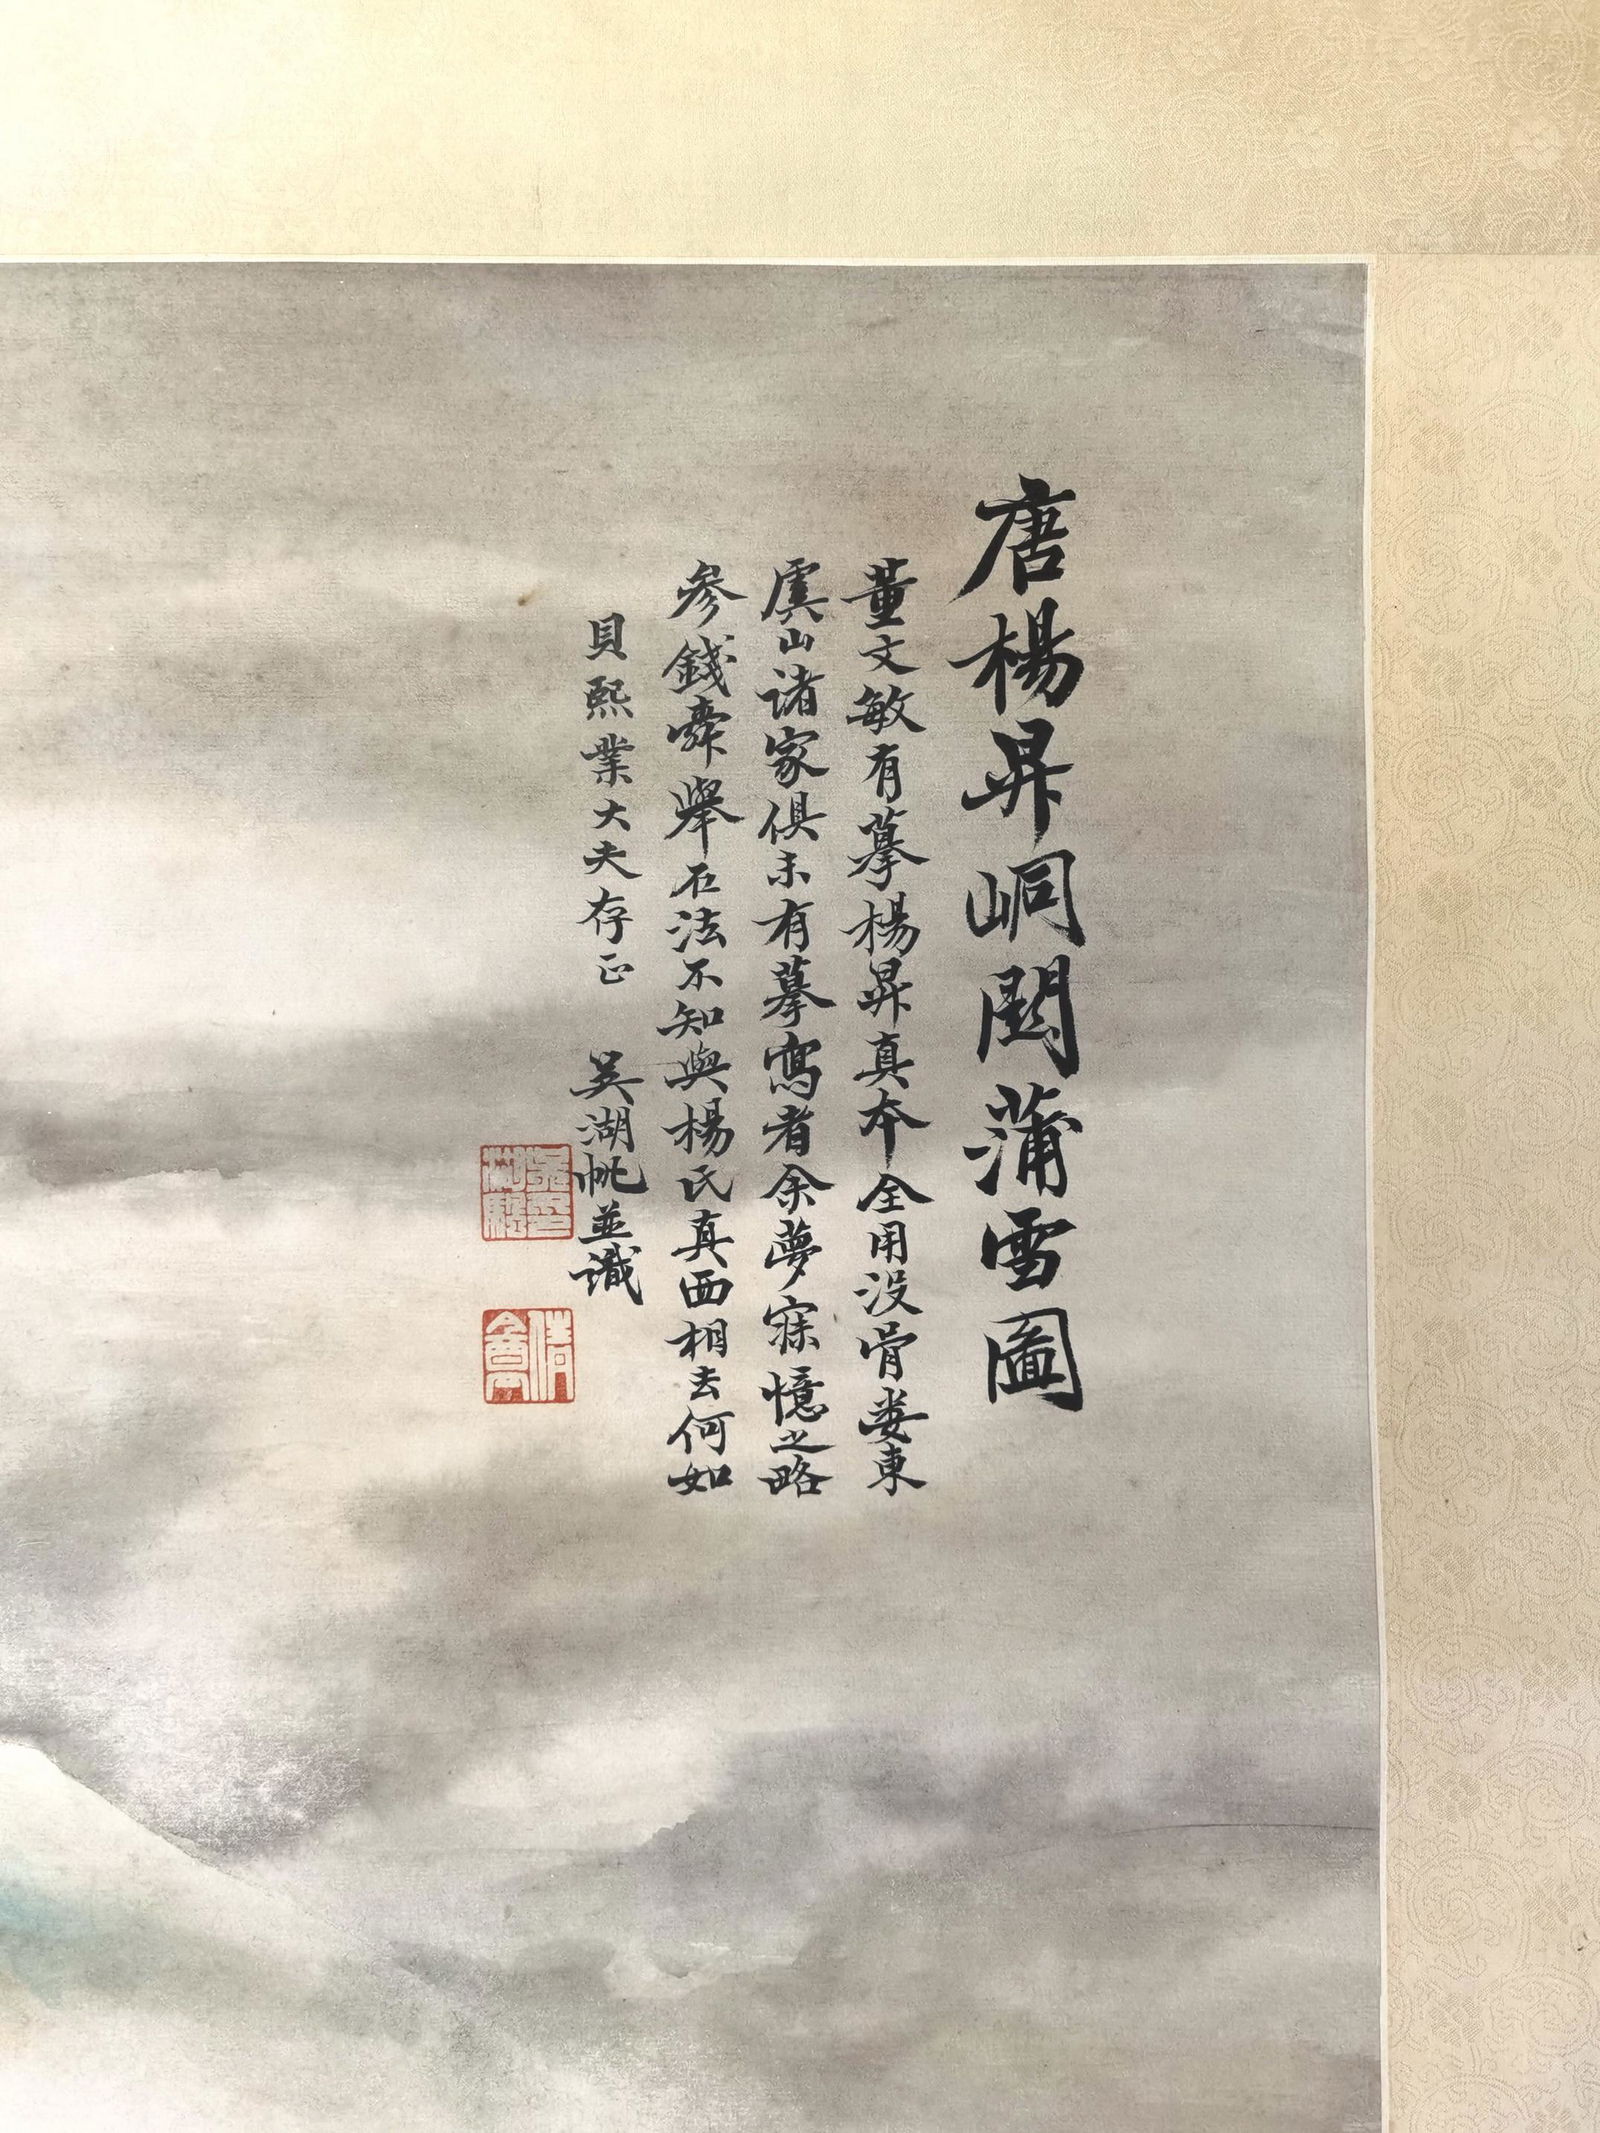 唐楊昇峒関蒲雪圖
董文敏有摹楊昇真本全用没骨婁東
虞山諸家俱未有摹寫者余夢寐憶之略
參錢舜舉石法不知與楊氏真面相去何如
貝熙業大夫存正 吳湖帆並識